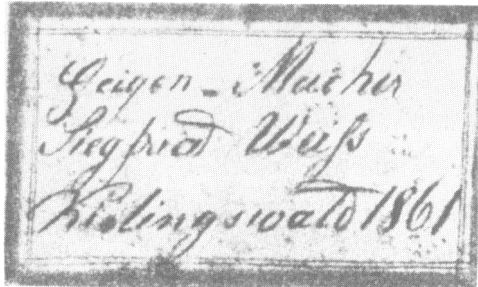 Geigen-Macher
Siegfried Weiß
Kislingswald 1861